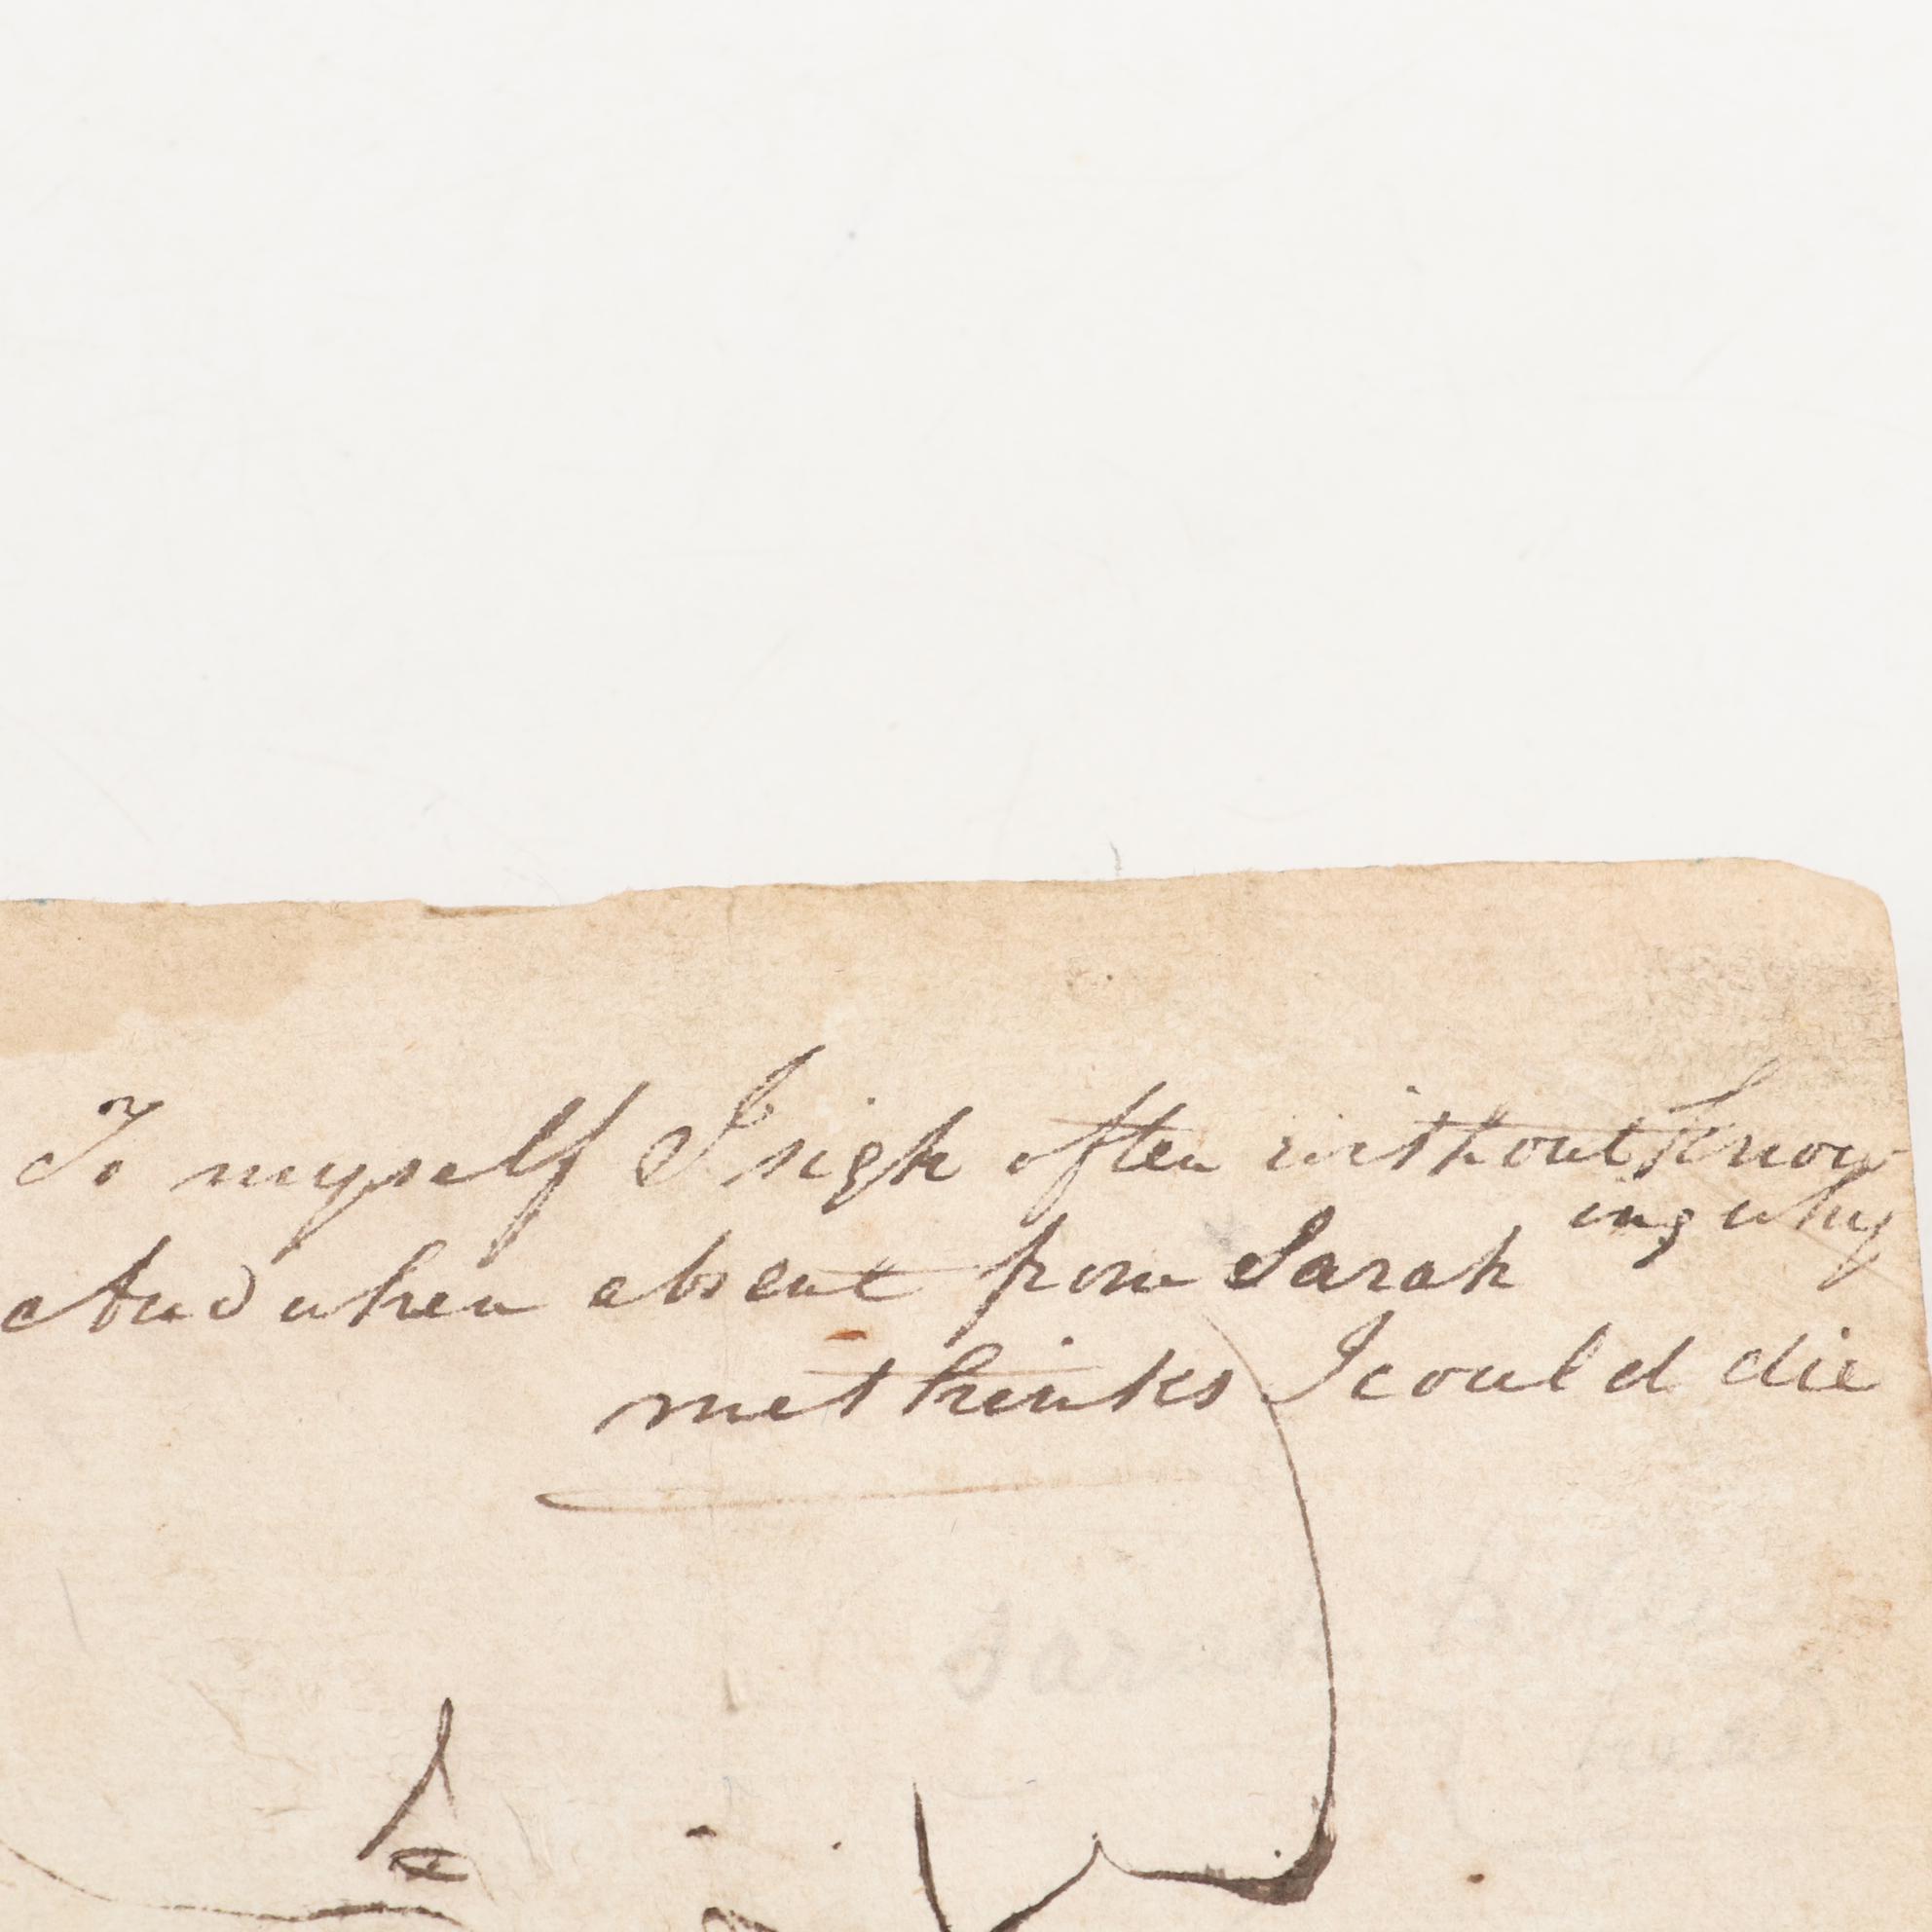 To myself I sigh often without know
ing why
And when absent from Sarah
methinks I could die
Sarah